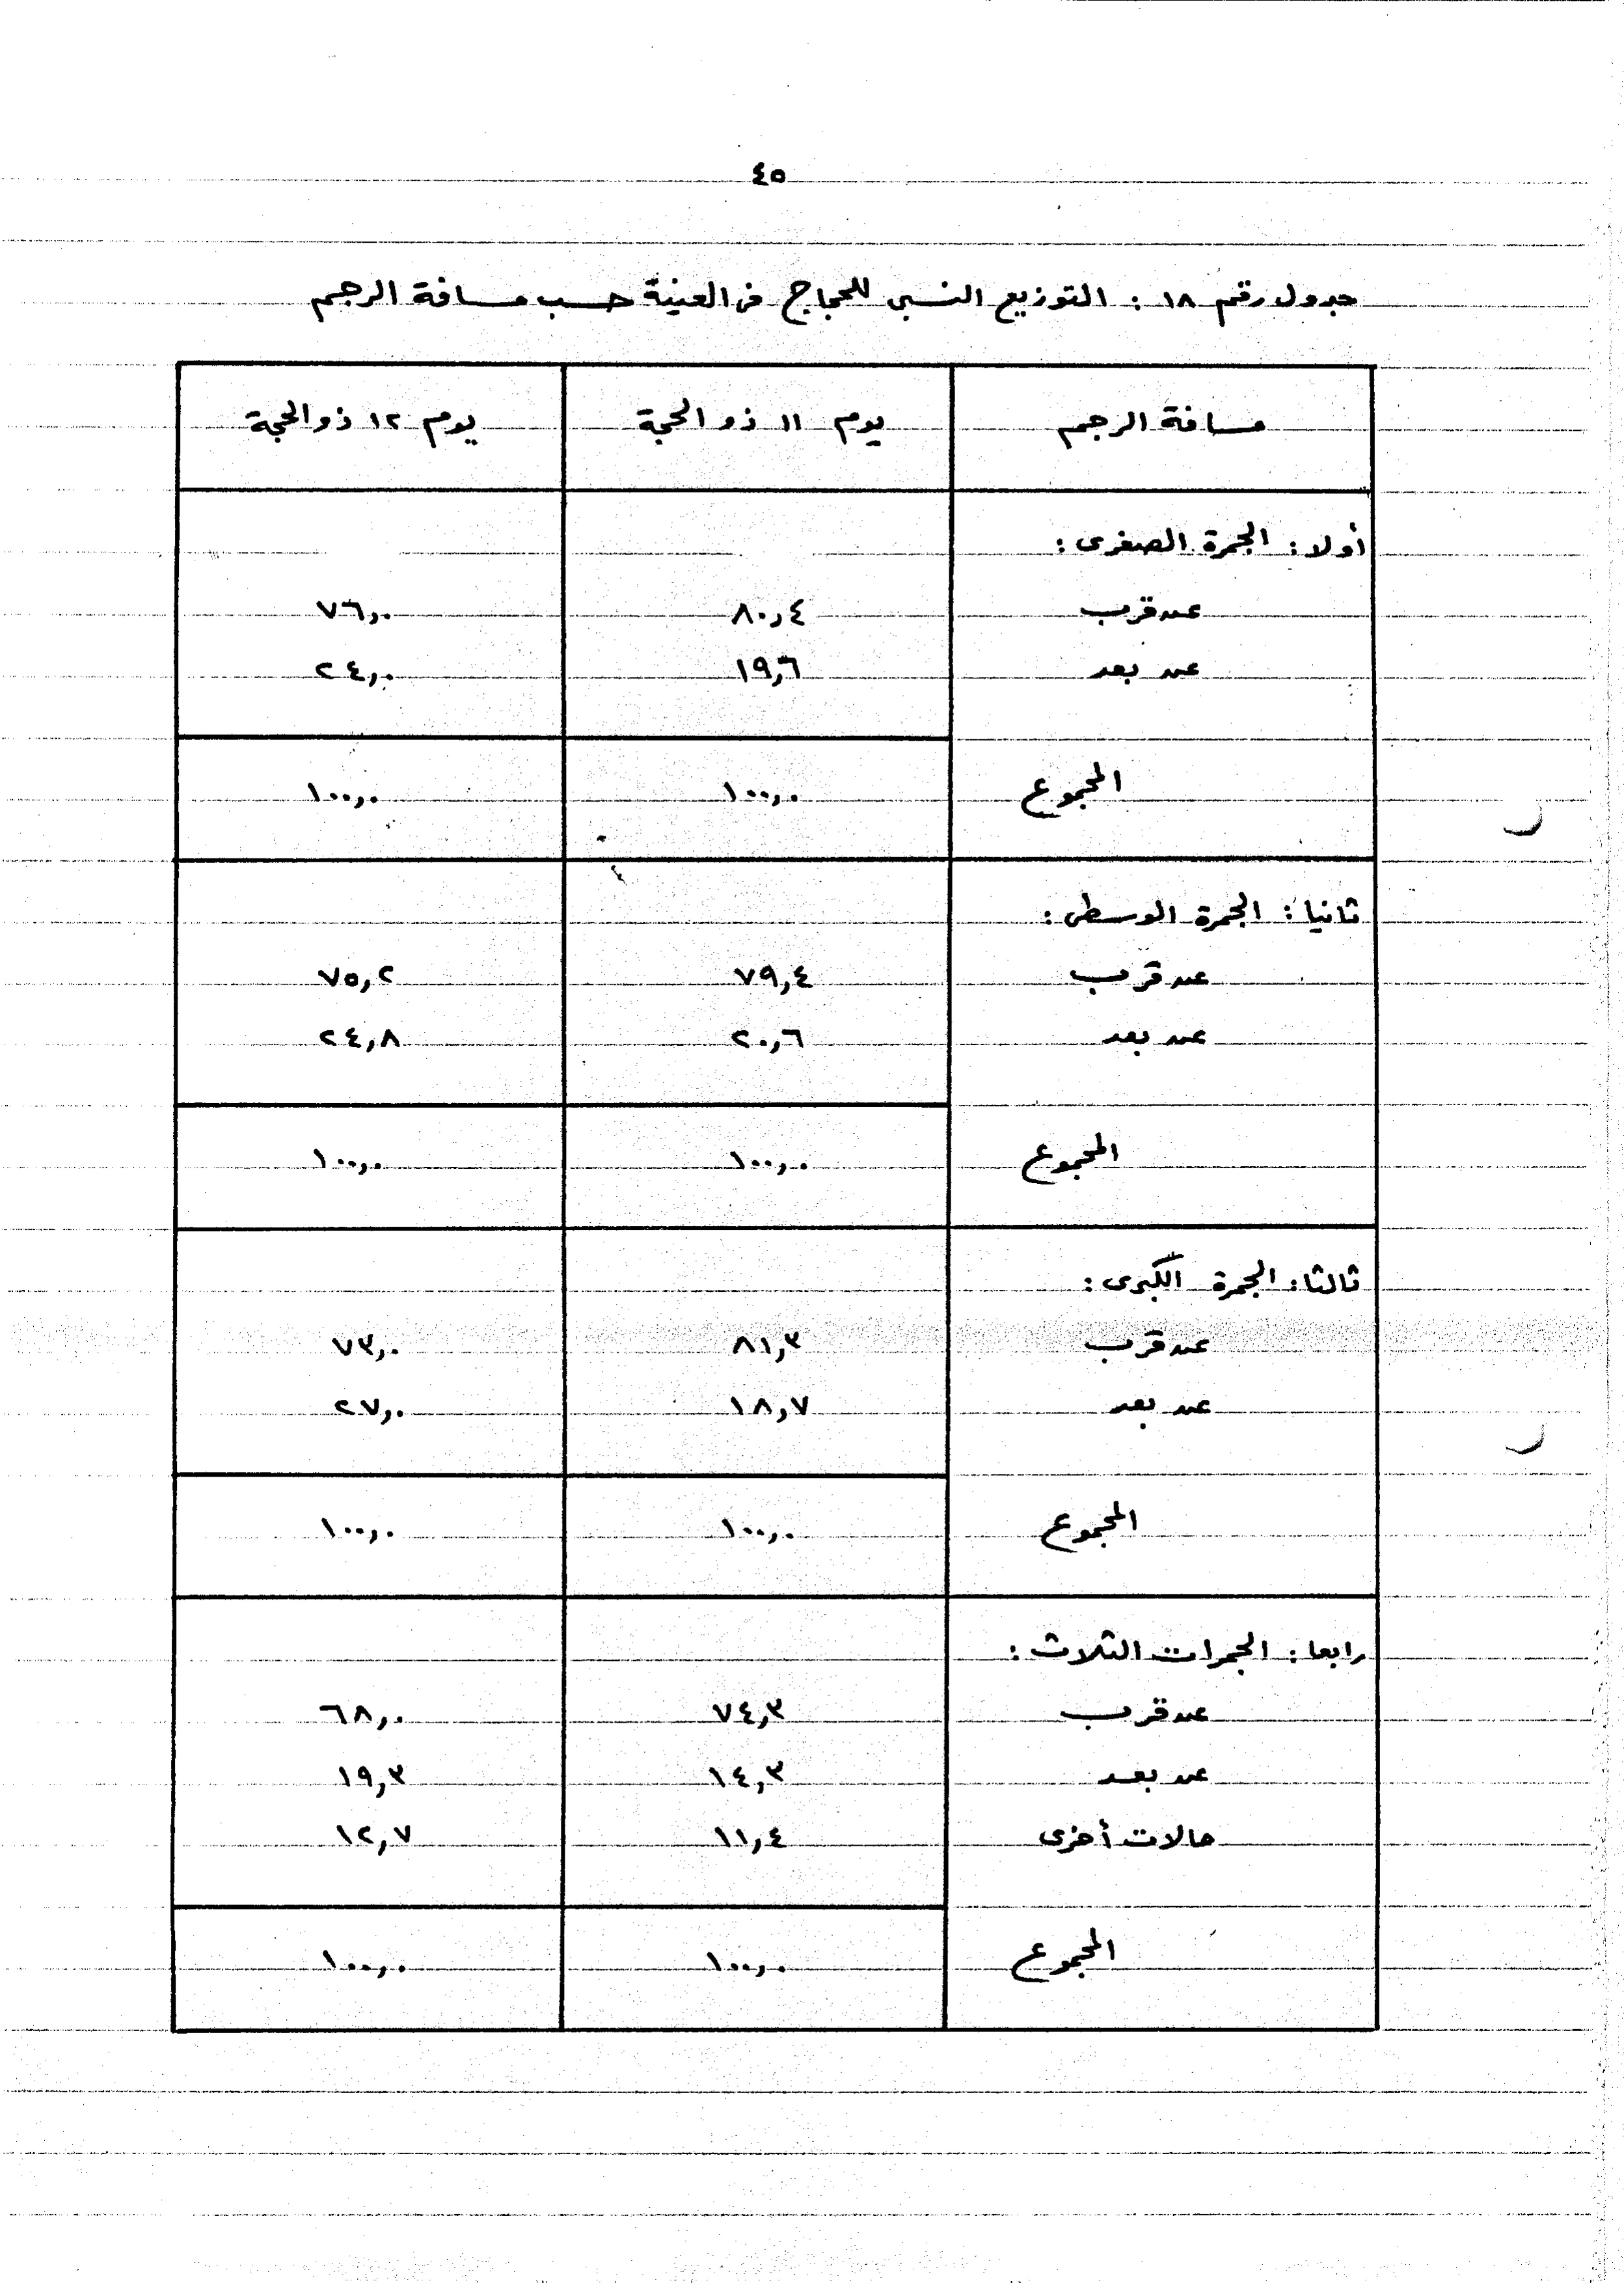 ٤٥
جدول رقم ١٨ : التوزيع النسبى للحجاج فى العينة حسب مسافة الرجم
مسافة الرجم يوم ١١ ذو الحجة يوم ١٢ ذو الحجة
أولا : الجمرة الصغرى :
عن قرب ٨٠,٤ ٧٦,٠
عن بعد ١٩,٦ ٢٤,٠
المجموع ١٠٠,٠ ١٠٠,٠
ثانيا : الجمرة الوسطى :
عن قرب ٧٩,٤ ٧٥,٢
عن بعد ٢٠,٦ ٢٤,٨
المجموع ١٠٠,٠ ١٠٠,٠
ثالثا : الجمرة الكبرى :
عن قرب ٨١,٣ ٧٣,٠
عن بعد ١٨,٧ ٢٧,٠
المجموع ١٠٠,٠ ١٠٠,٠
رابعا : الجمرات الثلاث :
عن قرب ٧٤,٣ ٦٨,٠
عن بعد ١٤,٣ ١٩,٣
حالات أخرى ١١,٤ ١٢,٧
المجموع ١٠٠,٠ ١٠٠,٠